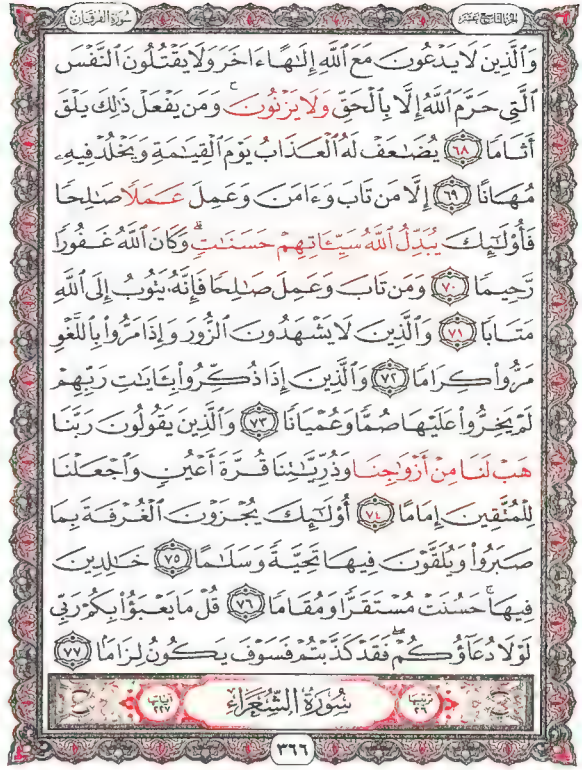 الجزء التاسع عشر سورة الفرقان
وَٱلَّذِينَ لَا يَدْعُونَ مَعَ ٱللَّهِ إِلَٰهًا ءَاخَرَ وَلَا يَقْتُلُونَ ٱلنَّفْسَ
ٱلَّتِي حَرَّمَ ٱللَّهُ إِلَّا بِٱلْحَقِّ وَلَا يَزْنُونَ ۚ وَمَن يَفْعَلْ ذَٰلِكَ يَلْقَ
أَثَامًا ٦٨ يُضَٰعَفْ لَهُ ٱلْعَذَابُ يَوْمَ ٱلْقِيَٰمَةِ وَيَخْلُدْ فِيهِۦ
مُهَانًا ٦٩ إِلَّا مَن تَابَ وَءَامَنَ وَعَمِلَ عَمَلًا صَٰلِحًا
فَأُوْلَٰٓئِكَ يُبَدِّلُ ٱللَّهُ سَيِّـَٔاتِهِمْ حَسَنَٰتٍ ۗ وَكَانَ ٱللَّهُ غَفُورًا
رَّحِيمًا ٧٠ وَمَن تَابَ وَعَمِلَ صَٰلِحًا فَإِنَّهُۥ يَتُوبُ إِلَى ٱللَّهِ
مَتَابًا ٧١ وَٱلَّذِينَ لَا يَشْهَدُونَ ٱلزُّورَ وَإِذَا مَرُّواْ بِٱللَّغْوِ
مَرُّواْ كِرَامًا ٧٢ وَٱلَّذِينَ إِذَا ذُكِّرُواْ بِـَٔايَٰتِ رَبِّهِمْ
لَمْ يَخِرُّواْ عَلَيْهَا صُمًّا وَعُمْيَانًا ٧٣ وَٱلَّذِينَ يَقُولُونَ رَبَّنَا
هَبْ لَنَا مِنْ أَزْوَٰجِنَا وَذُرِّيَّٰتِنَا قُرَّةَ أَعْيُنٍ وَٱجْعَلْنَا
لِلْمُتَّقِينَ إِمَامًا ٧٤ أُوْلَٰٓئِكَ يُجْزَوْنَ ٱلْغُرْفَةَ بِمَا
صَبَرُواْ وَيُلَقَّوْنَ فِيهَا تَحِيَّةً وَسَلَٰمًا ٧٥ خَٰلِدِينَ
فِيهَا ۚ حَسُنَتْ مُسْتَقَرًّا وَمُقَامًا ٧٦ قُلْ مَا يَعْبَؤُاْ بِكُمْ رَبِّي
لَوْلَا دُعَآؤُكُمْ ۖ فَقَدْ كَذَّبْتُمْ فَسَوْفَ يَكُونُ لِزَامًۢا ٧٧
ترتيبها ٢٦ سُورَةُ الشُّعَرَاءِ آياتها ٢٢٧
٣٦٦